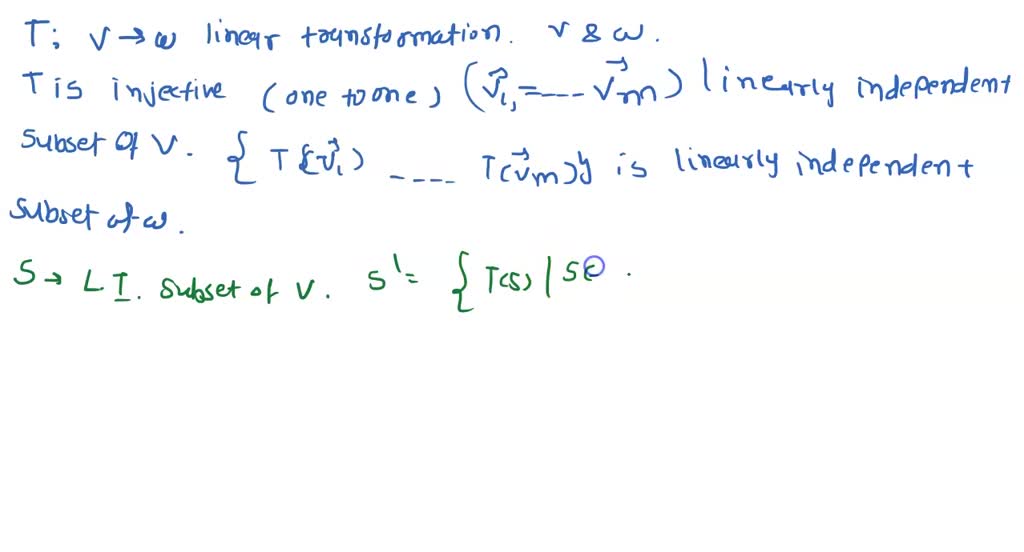 T; V → ω linear transformation. V & ω.
T is injective (one to one) (v⃗1, = ---- v⃗m) linearly independent
Subset Of V. { T{v⃗1) ---- T(v⃗m)} is linearly independent
Subset of ω.
S → L I. Subset of V. S' = { T(s) | S∈ .